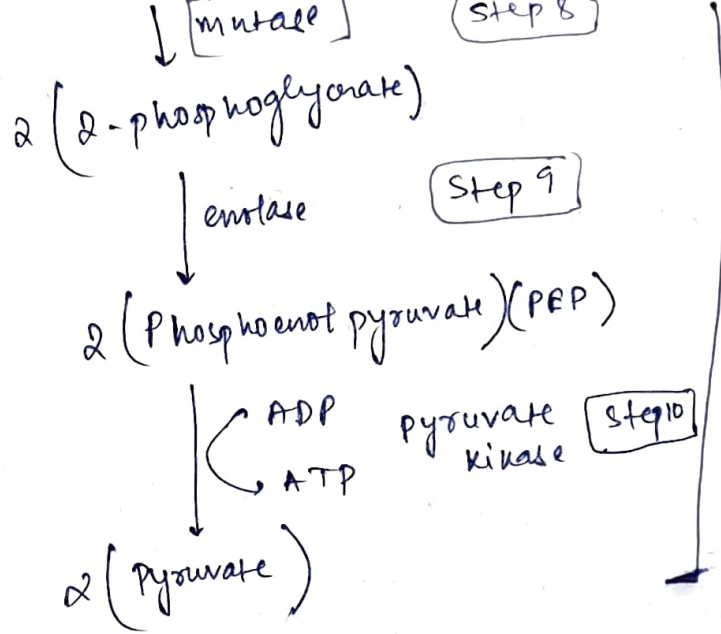 [mutase] Step 8
2 (2-phosphoglycerate)
enolase Step 9
2 (Phosphoenol pyruvate) (PEP)
ADP pyruvate Step 10
kinase
ATP
2 (Pyruvate)